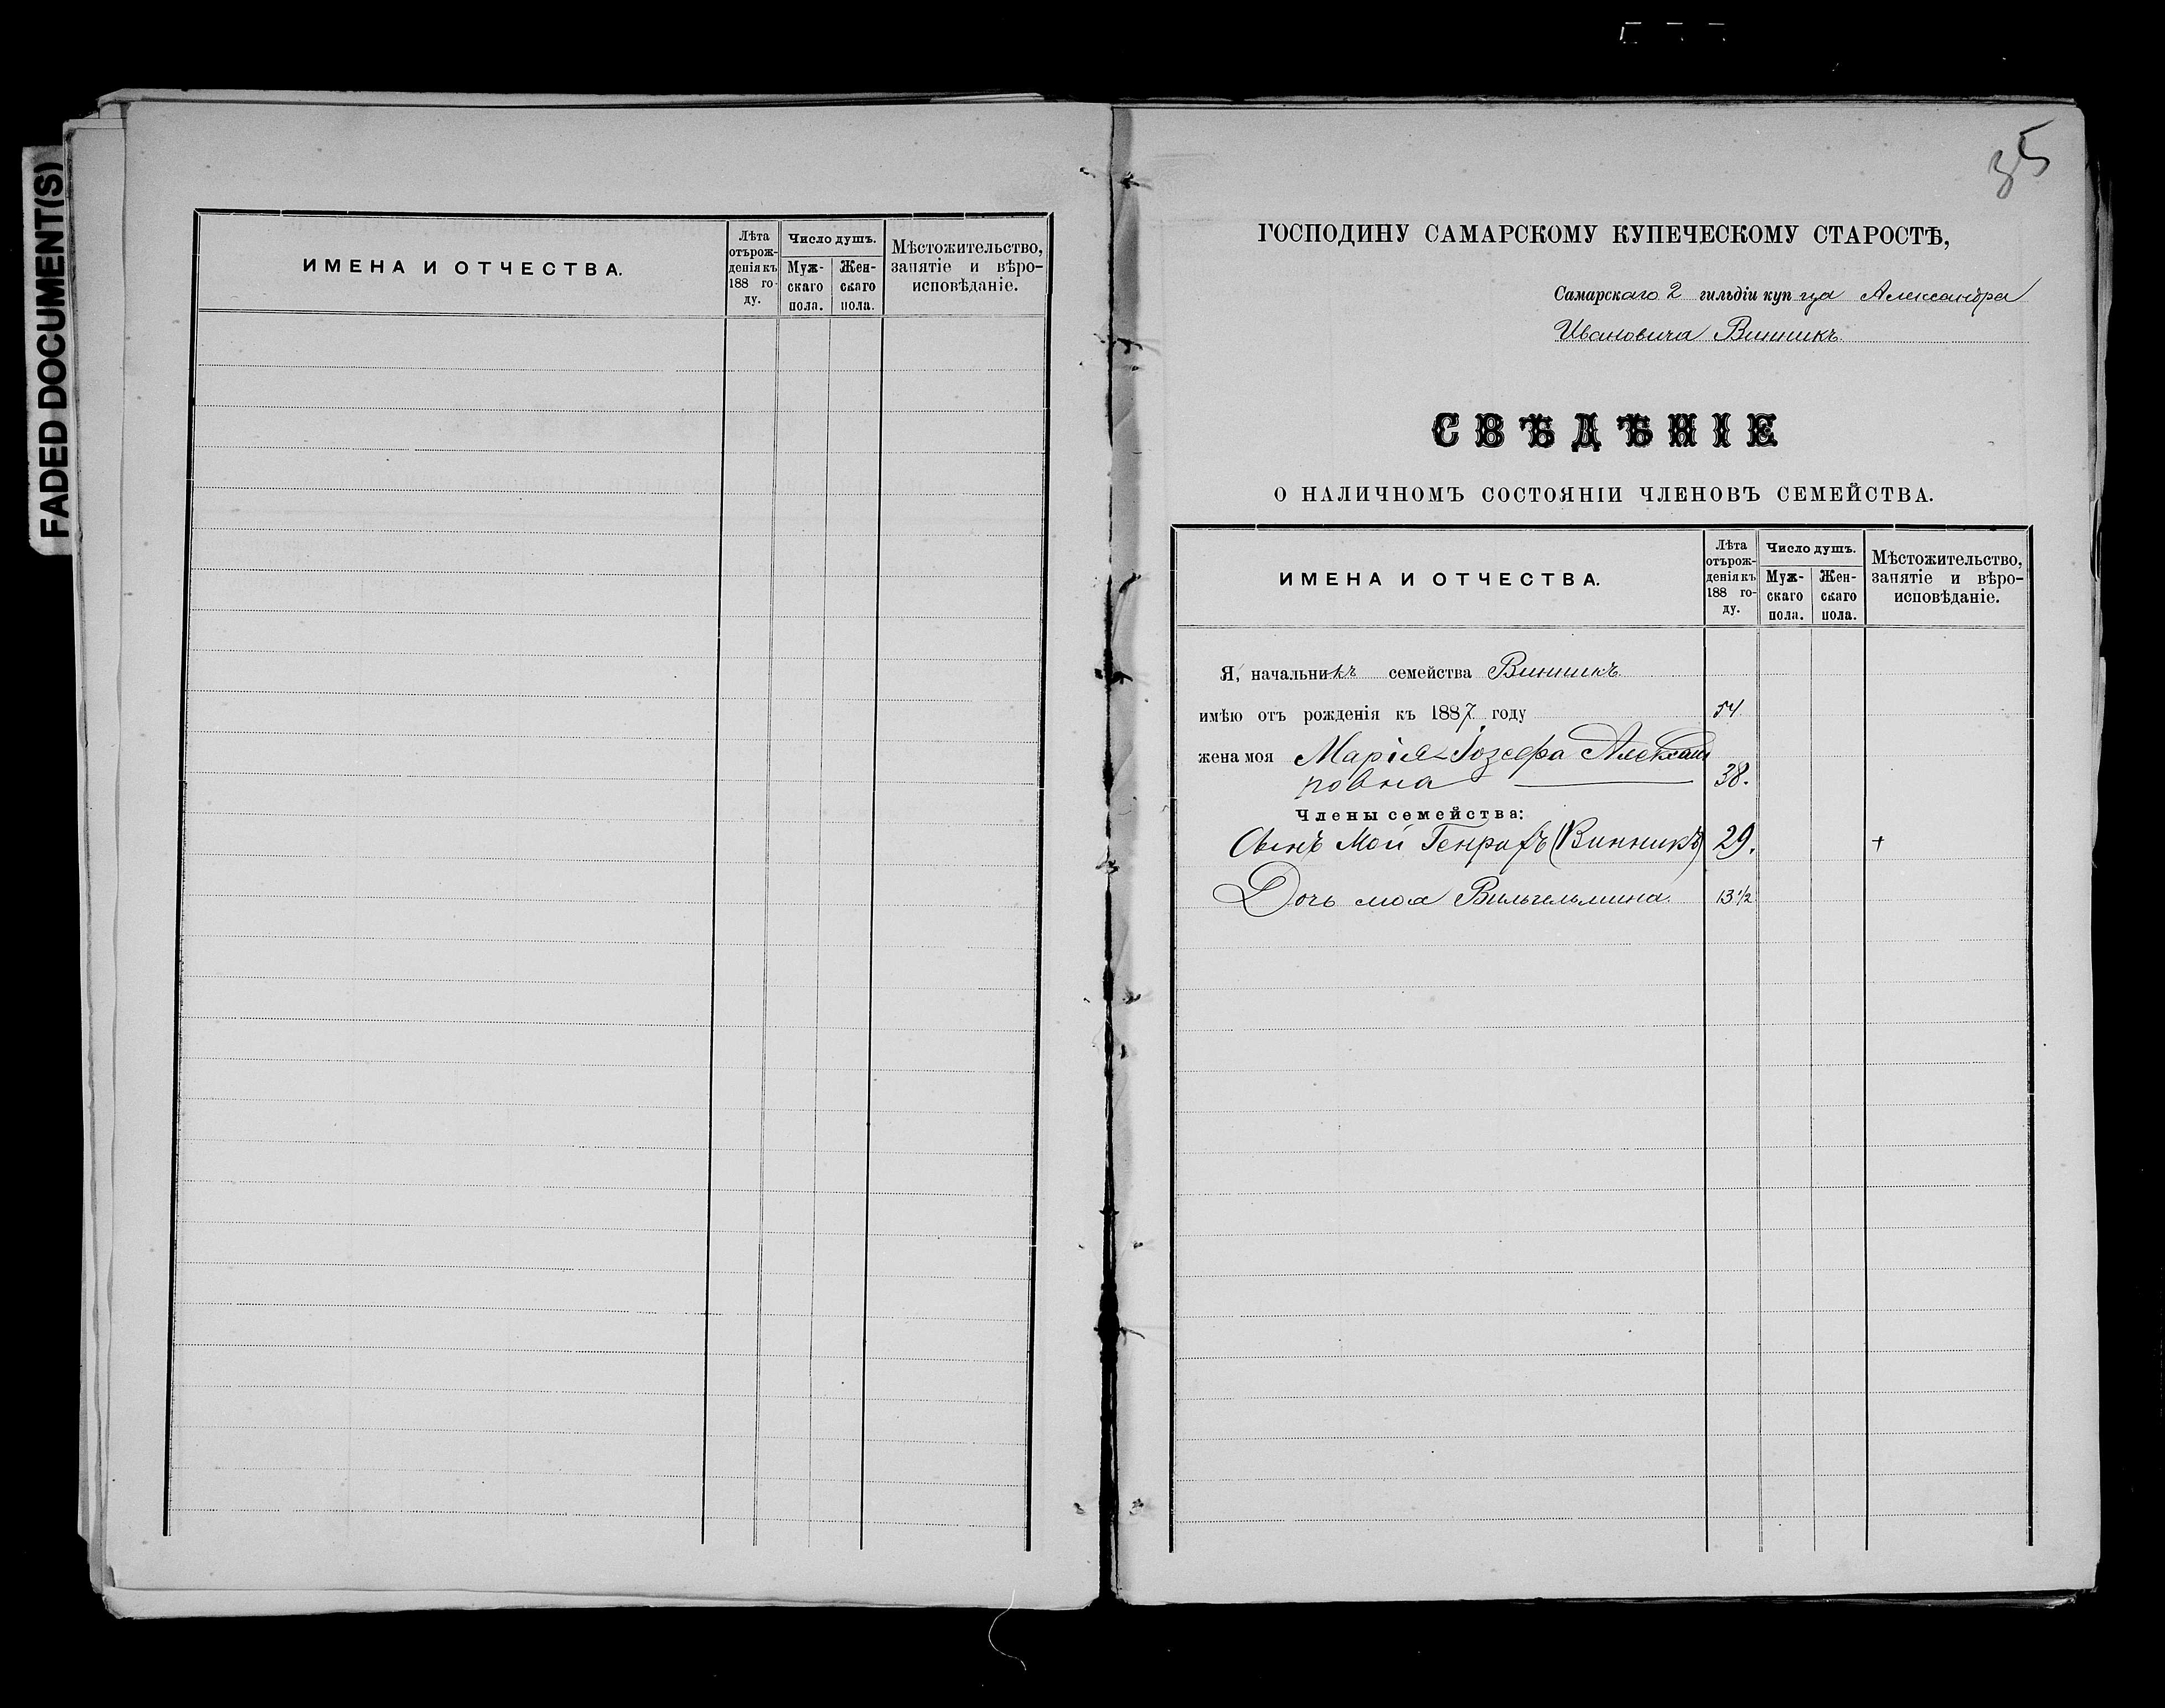 FADED DOCUMENT(S)
ИМЕНА И ОТЧЕСТВА.
Лѣта
отърож-
денія къ
188 го-
ду.
Число душъ.
Муж-
скаго
пола.
Жен-
скаго
пола.
Мѣстожительство,
занятіе и вѣро-
исповѣданіе.
35
ГОСПОДИНУ САМАРСКОМУ КУПЕЧЕСКОМУ СТАРОСТѢ,
Самарскаго 2 гильдіи купца Александра
Ивановича Винникъ
СВѢДѢНІЕ
О НАЛИЧНОМЪ СОСТОЯНІИ ЧЛЕНОВЪ СЕМЕЙСТВА.
ИМЕНА И ОТЧЕСТВА.
Лѣта
отърож-
денія къ
188 го-
ду.
Число душъ.
Муж-
скаго
пола.
Жен-
скаго
пола.
Мѣстожительство,
занятіе и вѣро-
исповѣданіе.
Я, начальникъ семейства Винникъ
имѣю отъ рожденія къ 1887 году 54
жена моя Марія-Іозефа
38.
Члены семейства:
Сынъ мой Генрихъ (Винникъ) 29. +
Дочь моя Вильгельмина 13 1/2